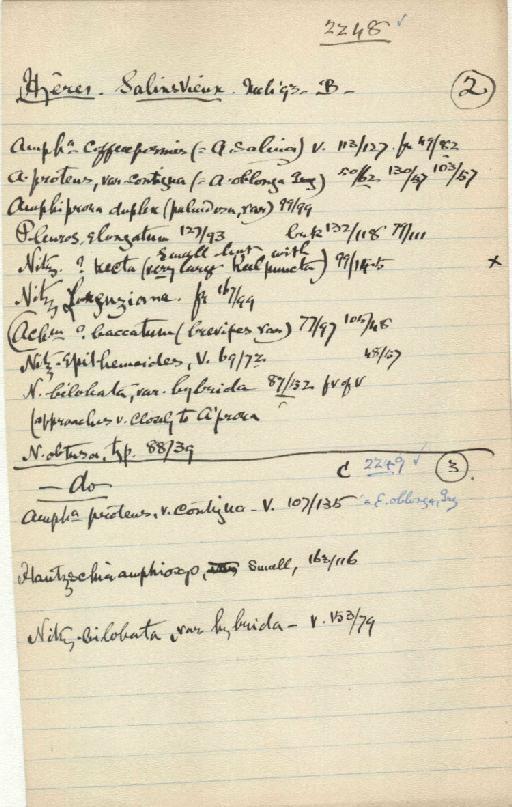 2248 ✓
Hyères. Salins Vieux. B - 2
Ampha coffeæformis (= A. Salina) v. 113/127. fr 49/82
A. proteus, var. contigua (= A. oblonga Greg) 50/62 130/57 103/57
Amphiprora duplex (paludosa, var) 99/99
Pleuros. elongatum 127/93 132/118 79/111
small but with
Nitz. ? recta (very large keel puncta) 99/145 x
Nitz. Lorenziana. fr 167/99
(Achn ? baccatum (brevipes var) 77/97 105/48
Nitz. Epithemoides, V. 69/72 48/57
N. bilobata, var. hybrida 87/132 fv of v
(approaches v. closely to A'prora
N. obtusa, typ. 88/39
C 2249 ✓ 3.
- do -
Ampha proteus, v. contigua - v. 107/135 = A. oblonga, Greg
Hantzschia amphioxys, small, 163/116
Nitz. bilobata var hybrida - v. 153/79